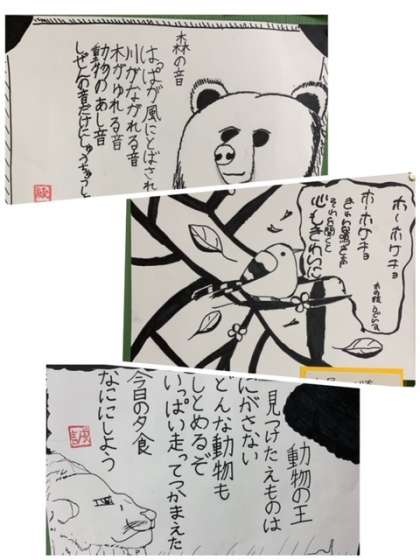 森の音
はっぱが風にとばされ
川がながれる音
木がゆれる音
動物のあし音
しぜんの音だけにしゅうちゅうし
ホーホケキョ
ホーホケキョ
心もきれいに
動物の王
見つけたえものは
にがさない
どんな動物も
しとめるぞ
いっぱい走ってつかまえた
今日の夕食
なににしよう